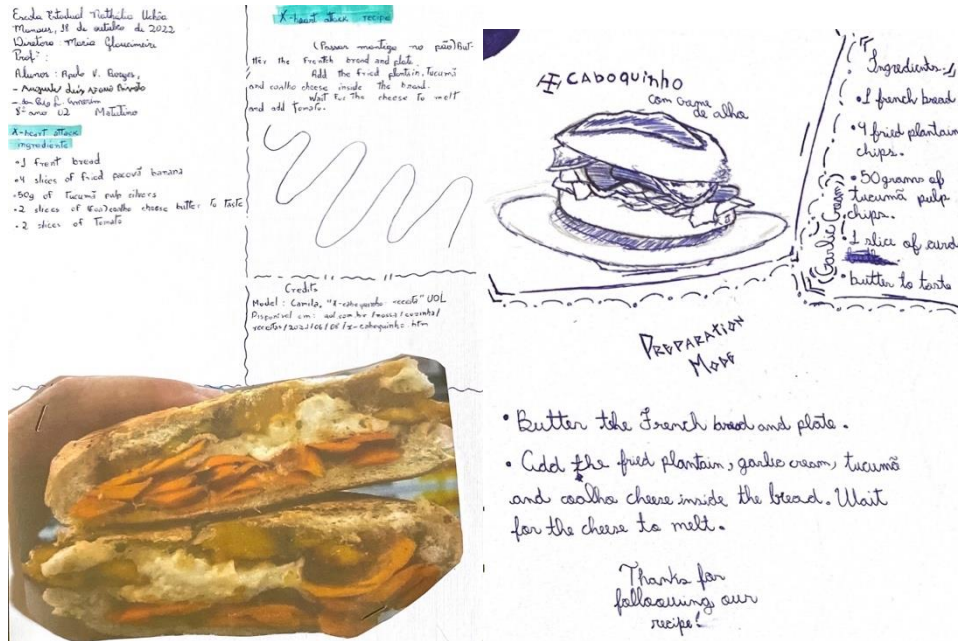 Escola Estadual Nathália Uchôa
Manaus, 18 de outubro de 2022
Diretora: Maria Glaucimeire
Prof.ª:
Alunos: Apolo V. Borges,
8º ano 02 Matutino
X-heart attack
ingredients
•1 frent bread
•4 slices of fried pacovã banana
•50g of Tucumã pulp slicers
•2 slices of coalho cheese butter to taste
•2 slices of Tomato
X-heart attack recipe
(Passar manteiga no pão)But-
ter the french bread and plate.
Add the fried plantain, Tucumã
and coalho cheese inside the bread.
Wait for the cheese to melt
and add tomato.
Credits
Model: Camila, "X-caboquinho receita" UOL
Disponível em: uol.com.br/nossa/cozinha/
receitas/2021/06/05/x-caboquinho.htm
X CABOQUINHO
com creme
de alho
Ingredients:
•1 french bread
•4 fried plantain
chips.
•50grams of
tucumã pulp
chips.
•1 slice of curd
•butter to taste
(Garlic Cream)
PREPARATION
MODE
•Butter tthe French bread and plate.
•Add the fried plantain, garlic cream, tucumã
and coalho cheese inside the bread. Wait
for the cheese to melt.
Thanks for
following our
recipe!